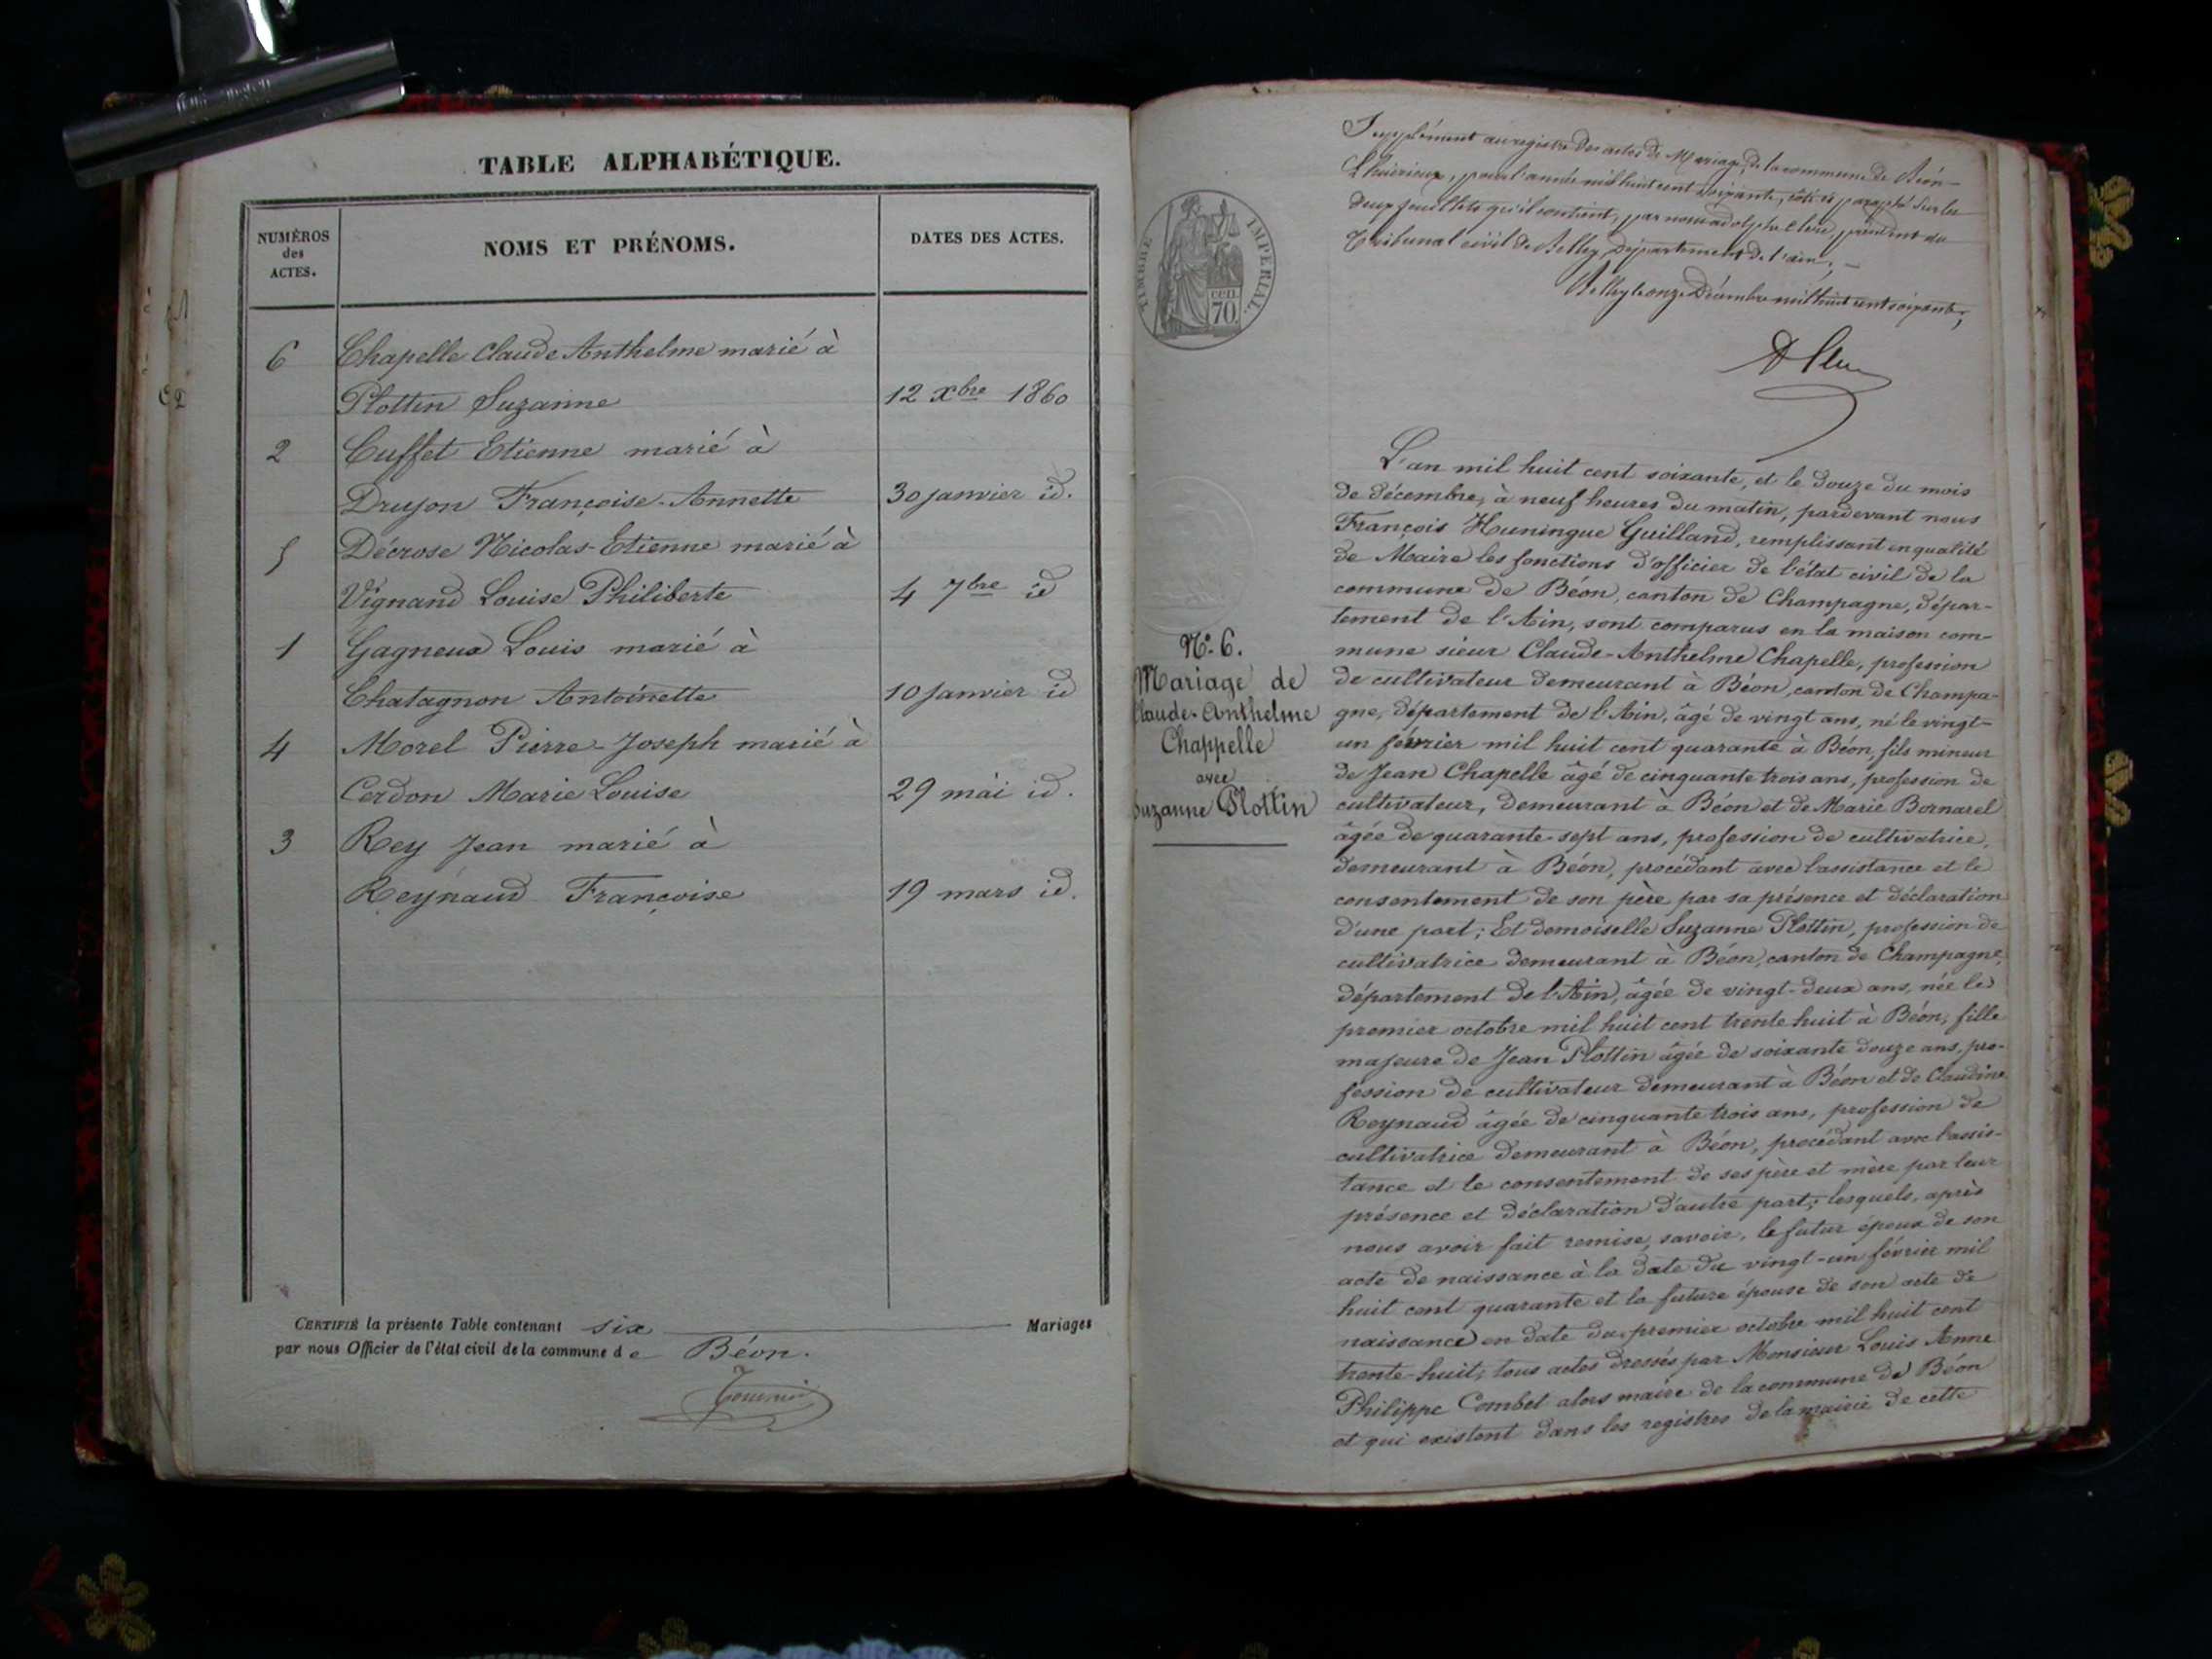 TABLE ALPHABÉTIQUE.
NUMÉROS
des
ACTES.
NOMS ET PRÉNOMS.
DATES DES ACTES.
6 Chapelle Claude Anthelme marié à
Plottin Suzanne 12 Xbre 1860
2 Cuffet Etienne marié à
Drujon Françoise-Annette 30 janvier id.
5 Décrose Nicolas-Etienne marié à
Vignand Louise Philiberte 4 7bre id
1 Gagneux Louis marié à
Chatagnon Antoinette 10 Janvier id
4 Morel Pierre-Joseph marié à
Cerdon Marie Louise 29 mai id.
3 Rey Jean marié à
Reynaud Françoise 19 mars id.
CERTIFIÉ la présente Table contenant six Mariages
par nous Officier de l'état civil de la commune de Béon.
TIMBRE IMPERIAL.
cen.
70.
Supplément au registre des actes de Mariage, de la commune de Béon-
Luirieux, pour l'année mil huit cent soixante, côté et paraphé sur les
deux feuillets qu'il contient, par nous adolphe Clerc, président du
Tribunal civil de Belley, département de l'ain;
Belley le onze Décembre mil huit cent soixante;
N° 6.
Mariage de
Claude-Anthelme
Chappelle
avec
Suzanne Plottin
L'an mil huit cent soixante, et le douze du mois
de décembre, à neuf heures du matin, pardevant nous
François Huningue Guilland, remplissant en qualité
de Maire les fonctions d'officier de l'état civil de la
commune de Béon, canton de Champagne, dépar-
tement de l'Ain, sont comparus en la maison com-
mune sieur Claude-Anthelme Chapelle, profession
de cultivateur demeurant à Béon, canton de Champa-
gne, département de l'Ain, âgé de vingt ans, né le vingt-
un février mil huit cent quarante à Béon, fils mineur
de Jean Chapelle âgé de cinquante trois ans, profession de
cultivateur, demeurant à Béon et de Marie Bornarel
âgée de quarante-sept ans, profession de cultivatrice,
demeurant à Béon, procédant avec l'assistance et le
consentement de son père par sa présence et déclaration
d'une part; Et demoiselle Suzanne Plottin, profession de
cultivatrice demeurant à Béon, canton de Champagne,
département de l'Ain, âgée de vingt-deux ans, née le
premier octobre mil huit cent trente huit à Béon, fille
majeure de Jean Plottin âgée de soixante douze ans, pro-
fession de cultivateur demeurant à Béon et de Claudine
Reynaud âgée de cinquante trois ans, profession de
cultivatrice demeurant à Béon, procédant avec l'assis-
tance et le consentement de ses père et mère par leur
présence et déclaration d'autre part; lesquels, après
nous avoir fait remise, savoir, le futur époux de son
acte de naissance à la date du vingt-un février mil
huit cent quarante et la future épouse de son acte de
naissance en date du premier octobre mil huit cent
trente-huit, tous actes dressés par Monsieur Louis Anne
Philippe Combet alors maire de la commune de Béon
et qui existent dans les registres de la mairie de cette